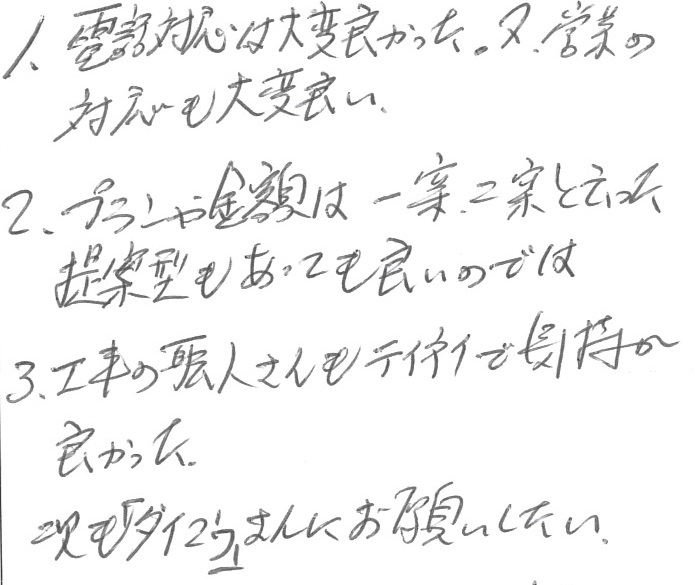 1、電話対応は大変良かった。又、営業の
対応も大変良い、
2、プランや金額は一案、二案と云った
提案型もあっても良いのでは
3、工事の職人さんもテイネイで気持が
良かった。
次も「ダイコウ」さんにお願いしたい、